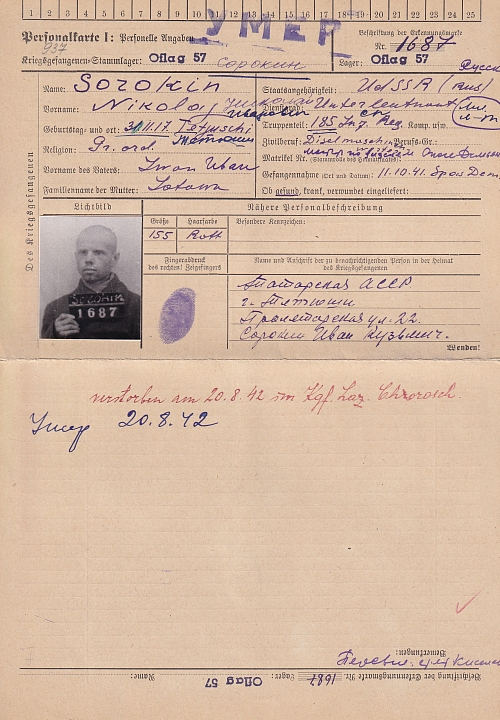 1 2 3 4 5 6 7 8 9 10 11 12 13 14 15 16 17 18 19 20 21 22 23 24 25
УМЕР
Personalkarte I: Personelle Angaben
937
Beschriftung der Erkennungsmarke
Nr. 1687
Kriegsgefangenen-Stammlager: Oflag 57 Сорокин
Lager: Oflag 57
Des Kriegsgefangenen
Name: Sorokin
Staatsangehörigkeit: UdSSR (Rus)
Vorname: Nikolaj Николай Иванович
Dienstgrad: Unterleutnant
Geburtstag und -ort: 30.11.17. Tetjuschi
Truppenteil: 185 Komp. usw.
Тетюши
Religion: Gr. ord.
Zivilberuf: Berufs-Gr.:
Matrikel Nr. (Stammrolle des Heimatstaates):
Vorname des Vaters: Iwan Иван
Gefangennahme (Ort und Datum): 11.10.41.
Familienname der Mutter:
Ob gesund, krank, verwundet eingeliefert:
Lichtbild
Nähere Personalbeschreibung
Größe Haarfarbe Besondere Kennzeichen:
155 Rott
Fingerabdruck
des rechten! Zeigefingers
Name und Anschrift der zu benachrichtigenden Person in der Heimat
des Kriegsgefangenen
SOROKIN
1687
Татарская АССР
г. Тетюши
Пролетарская ул. 22.
Сорокин Иван Кузьмич.
Wenden!
verstorben am 20.8.42 im Kgf. Laz. Chorosch.
Умер 20.8.42
Bemerkungen:
Beschriftung der Erkennungsmarke Nr. 1687 Lager: Oflag 57 Name: